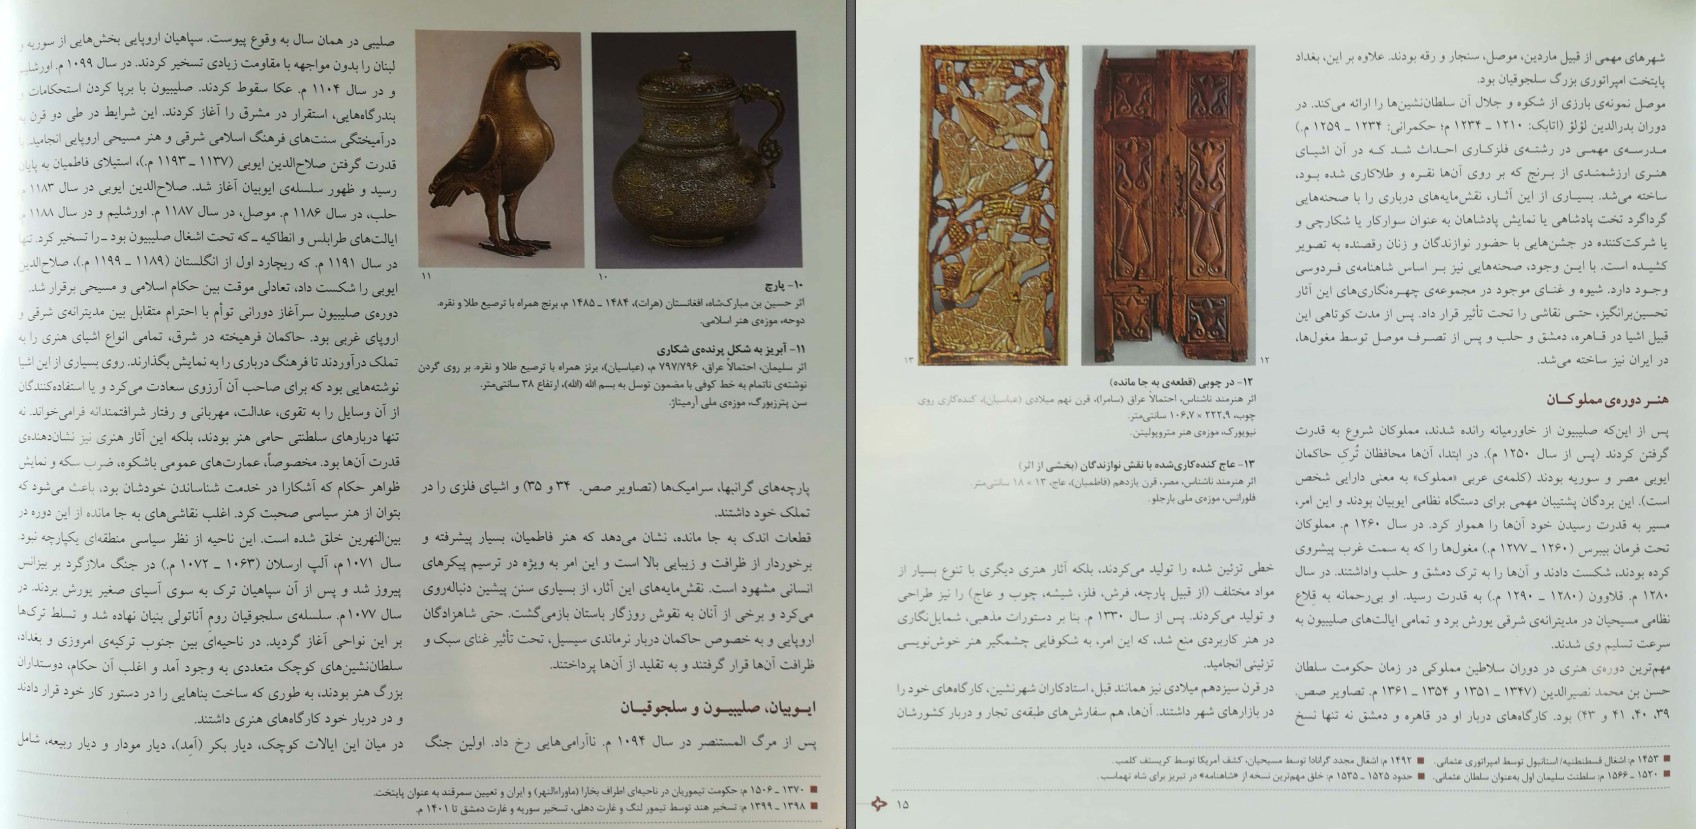 ۱۱
۱۰
۱۰- پارچ
اثر حسین بن مبارک‌شاه، افغانستان (هرات)، ۱۴۸۴ ـ ۱۴۸۵ م، برنج همراه با ترصیع طلا و نقره.
دوحه، موزه‌ی هنر اسلامی.
۱۱- آبریز به شکل پرنده‌ی شکاری
اثر سلیمان، احتمالاً عراق، ۷۹۷/۷۹۶ م، (عباسیان)، برنز همراه با ترصیع طلا و نقره. بر روی گردن
نوشته‌ی ناتمام به خط کوفی با مضمون توسل به بسم الله (الله)، ارتفاع ۳۸ سانتی‌متر.
سن پترزبورگ، موزه‌ی ملی آرمیتاژ.
پارچه‌های گرانبها، سرامیک‌ها (تصاویر صص. ۳۴ و ۳۵) و اشیای فلزی را در
تملک خود داشتند.
قطعات اندک به جا مانده، نشان می‌دهد که هنر فاطمیان، بسیار پیشرفته و
برخوردار از ظرافت و زیبایی بالا است و این امر به ویژه در ترسیم پیکرهای
انسانی مشهود است. نقش‌مایه‌های این آثار، از بسیاری سنن پیشین دنباله‌روی
می‌کرد و برخی از آنان به نقوش روزگار باستان بازمی‌گشت. حتی شاهزادگان
اروپایی و به خصوص حاکمان دربار نرماندی سیسیل، تحت تأثیر غنای سبک و
ظرافت آن‌ها قرار گرفتند و به تقلید از آن‌ها پرداختند.
ایـوبیان، صلیبیـون و سلجوقیـان
پس از مرگ المستنصر در سال ۱۰۹۴ م. ناآرامی‌هایی رخ داد. اولین جنگ
صلیبی در همان سال به وقوع پیوست. سپاهیان اروپایی بخش‌هایی از سوریه و
لبنان را بدون مواجهه با مقاومت زیادی تسخیر کردند. در سال ۱۰۹۹ م. اورشلیم
و در سال ۱۱۰۴ م. عکا سقوط کردند. صلیبیون با برپا کردن استحکامات و
بندرگاه‌هایی، استقرار در مشرق را آغاز کردند. این شرایط در طی دو قرن به
درآمیختگی سنت‌های فرهنگ اسلامی شرقی و هنر مسیحی اروپایی انجامید. با
قدرت گرفتن صلاح‌الدین ایوبی (۱۱۳۷ ـ ۱۱۹۳ م.)، استیلای فاطمیان به پایان
رسید و ظهور سلسله‌ی ایوبیان آغاز شد. صلاح‌الدین ایوبی در سال ۱۱۸۳ م.
حلب، در سال ۱۱۸۶ م. موصل، در سال ۱۱۸۷ م. اورشلیم و در سال ۱۱۸۸ م.
ایالت‌های طرابلس و انطاکیه ـ که تحت اشغال صلیبیون بود ـ را تسخیر کرد. تنها
در سال ۱۱۹۱ م. که ریچارد اول از انگلستان (۱۱۸۹ ـ ۱۱۹۹ م.)، صلاح‌الدین
ایوبی را شکست داد، تعادلی موقت بین حکام اسلامی و مسیحی برقرار شد.
دوره‌ی صلیبیون سرآغاز دورانی توأم با احترام متقابل بین مدیترانه‌ی شرقی و
اروپای غربی بود. حاکمان فرهیخته در شرق، تمامی انواع اشیای هنری را به
تملک درآوردند تا فرهنگ درباری را به نمایش بگذارند. روی بسیاری از این اشیا
نوشته‌هایی بود که برای صاحب آن آرزوی سعادت می‌کرد و یا استفاده‌کنندگان
از آن وسایل را به تقوی، عدالت، مهربانی و رفتار شرافتمندانه فرامی‌خواند. نه
تنها دربارهای سلطنتی حامی هنر بودند، بلکه این آثار هنری نیز نشان‌دهنده‌ی
قدرت آن‌ها بود. مخصوصاً، عمارت‌های عمومی باشکوه، ضرب سکه و نمایش
ظواهر حکام که آشکارا در خدمت شناساندن خودشان بود، باعث می‌شود که
بتوان از هنر سیاسی صحبت کرد. اغلب نقاشی‌های به جا مانده از این دوره در
بین‌النهرین خلق شده است. این ناحیه از نظر سیاسی منطقه‌ای یکپارچه نبود.
سال ۱۰۷۱م، آلپ ارسلان (۱۰۶۳ ـ ۱۰۷۲ م.) در جنگ ملازگرد بر بیزانس
پیروز شد و پس از آن سپاهیان ترک به سوی آسیای صغیر یورش بردند. در
سال ۱۰۷۷م. سلسله‌ی سلجوقیان رومِ آناتولی بنیان نهاده شد و تسلط ترک‌ها
بر این نواحی آغاز گردید. در ناحیه‌ای بین جنوب ترکیه‌ی امروزی و بغداد،
سلطان‌نشین‌های کوچک متعددی به وجود آمد و اغلب آن حکام، دوستداران
بزرگ هنر بودند، به طوری که ساخت بناهایی را در دستور کار خود قرار دادند
و در دربار خود کارگاه‌های هنری داشتند.
در میان این ایالات کوچک، دیار بکر (آمِد)، دیار مودار و دیار ربیعه، شامل
۱۳۷۰ ـ ۱۵۰۶ م: حکومت تیموریان در ناحیه‌ای اطراف بخارا (ماوراءالنهر) و ایران و تعیین سمرقند به عنوان پایتخت.
۱۳۹۸ ـ ۱۳۹۹ م: تسخیر هند توسط تیمور لنگ و غارت دهلی، تسخیر سوریه و غارت دمشق تا ۱۴۰۱ م.
شهرهای مهمی از قبیل ماردین، موصل، سنجار و رقه بودند. علاوه بر این، بغداد
پایتخت امپراتوری بزرگ سلجوقیان بود.
موصل نمونه‌ی بارزی از شکوه و جلال آن سلطان‌نشین‌ها را ارائه می‌کند. در
دوران بدرالدین لؤلؤ (اتابک: ۱۲۱۰ ـ ۱۲۳۴ م؛ حکمرانی: ۱۲۳۴ ـ ۱۲۵۹ م.)
مدرسه‌ی مهمی در رشته‌ی فلزکاری احداث شد که در آن اشیای
هنری ارزشمندی از برنج که بر روی آن‌ها نقره و طلاکاری شده بود،
ساخته می‌شد. بسیاری از این آثار، نقش‌مایه‌های درباری را با صحنه‌هایی
گرداگرد تخت پادشاهی یا نمایش پادشاهان به عنوان سوارکار یا شکارچی و
یا شرکت‌کننده در جشن‌هایی با حضور نوازندگان و زنان رقصنده به تصویر
کشیده است. با این وجود، صحنه‌هایی نیز بر اساس شاهنامه‌ی فردوسی
وجود دارد. شیوه و غنای موجود در مجموعه‌ی چهره‌نگاری‌های این آثار
تحسین‌برانگیز، حتی نقاشی را تحت تأثیر قرار داد. پس از مدت کوتاهی این
قبیل اشیا در قاهره، دمشق و حلب و پس از تصرف موصل توسط مغول‌ها،
در ایران نیز ساخته می‌شد.
هنـر دوره‌ی مملوکـان
پس از این‌که صلیبیون از خاورمیانه رانده شدند، مملوکان شروع به قدرت
گرفتن کردند (پس از سال ۱۲۵۰ م). در ابتدا، آن‌ها محافظان تُرکِ حاکمان
ایوبی مصر و سوریه بودند (کلمه‌ی عربی «مملوک» به معنی دارایی شخص
است). این بردگان پشتیبان مهمی برای دستگاه نظامی ایوبیان بودند و این امر،
مسیر به قدرت رسیدن خود آن‌ها را هموار کرد. در سال ۱۲۶۰ م. مملوکان
تحت فرمان بیبرس (۱۲۶۰ ـ ۱۲۷۷ م.) مغول‌ها را که به سمت غرب پیشروی
کرده بودند، شکست دادند و آن‌ها را به ترک دمشق و حلب واداشتند. در سال
۱۲۸۰ م. قلاوون (۱۲۸۰ ـ ۱۲۹۰ م.) به قدرت رسید. او بی‌رحمانه به قِلاع
نظامی مسیحیان در مدیترانه‌ی شرقی یورش برد و تمامی ایالت‌های صلیبیون به
سرعت تسلیم وی شدند.
مهم‌ترین دوره‌ی هنری در دوران سلاطین مملوکی در زمان حکومت سلطان
حسن بن محمد نصیرالدین (۱۳۴۷ ـ ۱۳۵۱ و ۱۳۵۴ ـ ۱۳۶۱ م. تصاویر صص.
۳۹، ۴۰، ۴۱ و ۴۳) بود. کارگاه‌های دربار او در قاهره و دمشق نه تنها نسخ
۱۳
۱۲
۱۲- در چوبی (قطعه‌ی به جا مانده)
اثر هنرمند ناشناس، احتمالاً عراق (سامرا)، قرن نهم میلادی (عباسیان)، کنده‌کاری روی
چوب، ۲۲۲٫۹ × ۱۰۶٫۷ سانتی‌متر.
نیویورک، موزه‌ی هنر متروپولیتن.
۱۳- عاج کنده‌کاری‌شده با نقش نوازندگان (بخشی از اثر)
اثر هنرمند ناشناس، مصر، قرن یازدهم (فاطمیان)، عاج، ۱۳ × ۱۸ سانتی‌متر.
فلورانس، موزه‌ی ملی بارجلو.
خطی تزئین شده را تولید می‌کردند، بلکه آثار هنری دیگری با تنوع بسیار از
مواد مختلف (از قبیل پارچه، فرش، فلز، شیشه، چوب و عاج) را نیز طراحی
و تولید می‌کردند. پس از سال ۱۳۳۰ م. بنا بر دستورات مذهبی، شمایل‌نگاری
در هنر کاربردی منع شد، که این امر، به شکوفایی چشمگیر هنر خوش‌نویسی
تزئینی انجامید.
در قرن سیزدهم میلادی نیز همانند قبل، استادکاران شهرنشین، کارگاه‌های خود را
در بازارهای شهر داشتند. آن‌ها، هم سفارش‌های طبقه‌ی تجار و دربار کشورشان
۱۴۵۳ م: اشغال قسطنطنیه/ استانبول توسط امپراتوری عثمانی. ۱۴۹۲ م: اشغال مجدد گرانادا توسط مسیحیان، کشف آمریکا توسط کریستف کلمب.
۱۵۲۰ ـ ۱۵۶۶ م: سلطنت سلیمان اول به‌عنوان سلطان عثمانی. حدود ۱۵۲۵ ـ ۱۵۳۵ م: خلق مهم‌ترین نسخه از «شاهنامه» در تبریز برای شاه تهماسب.
۱۵